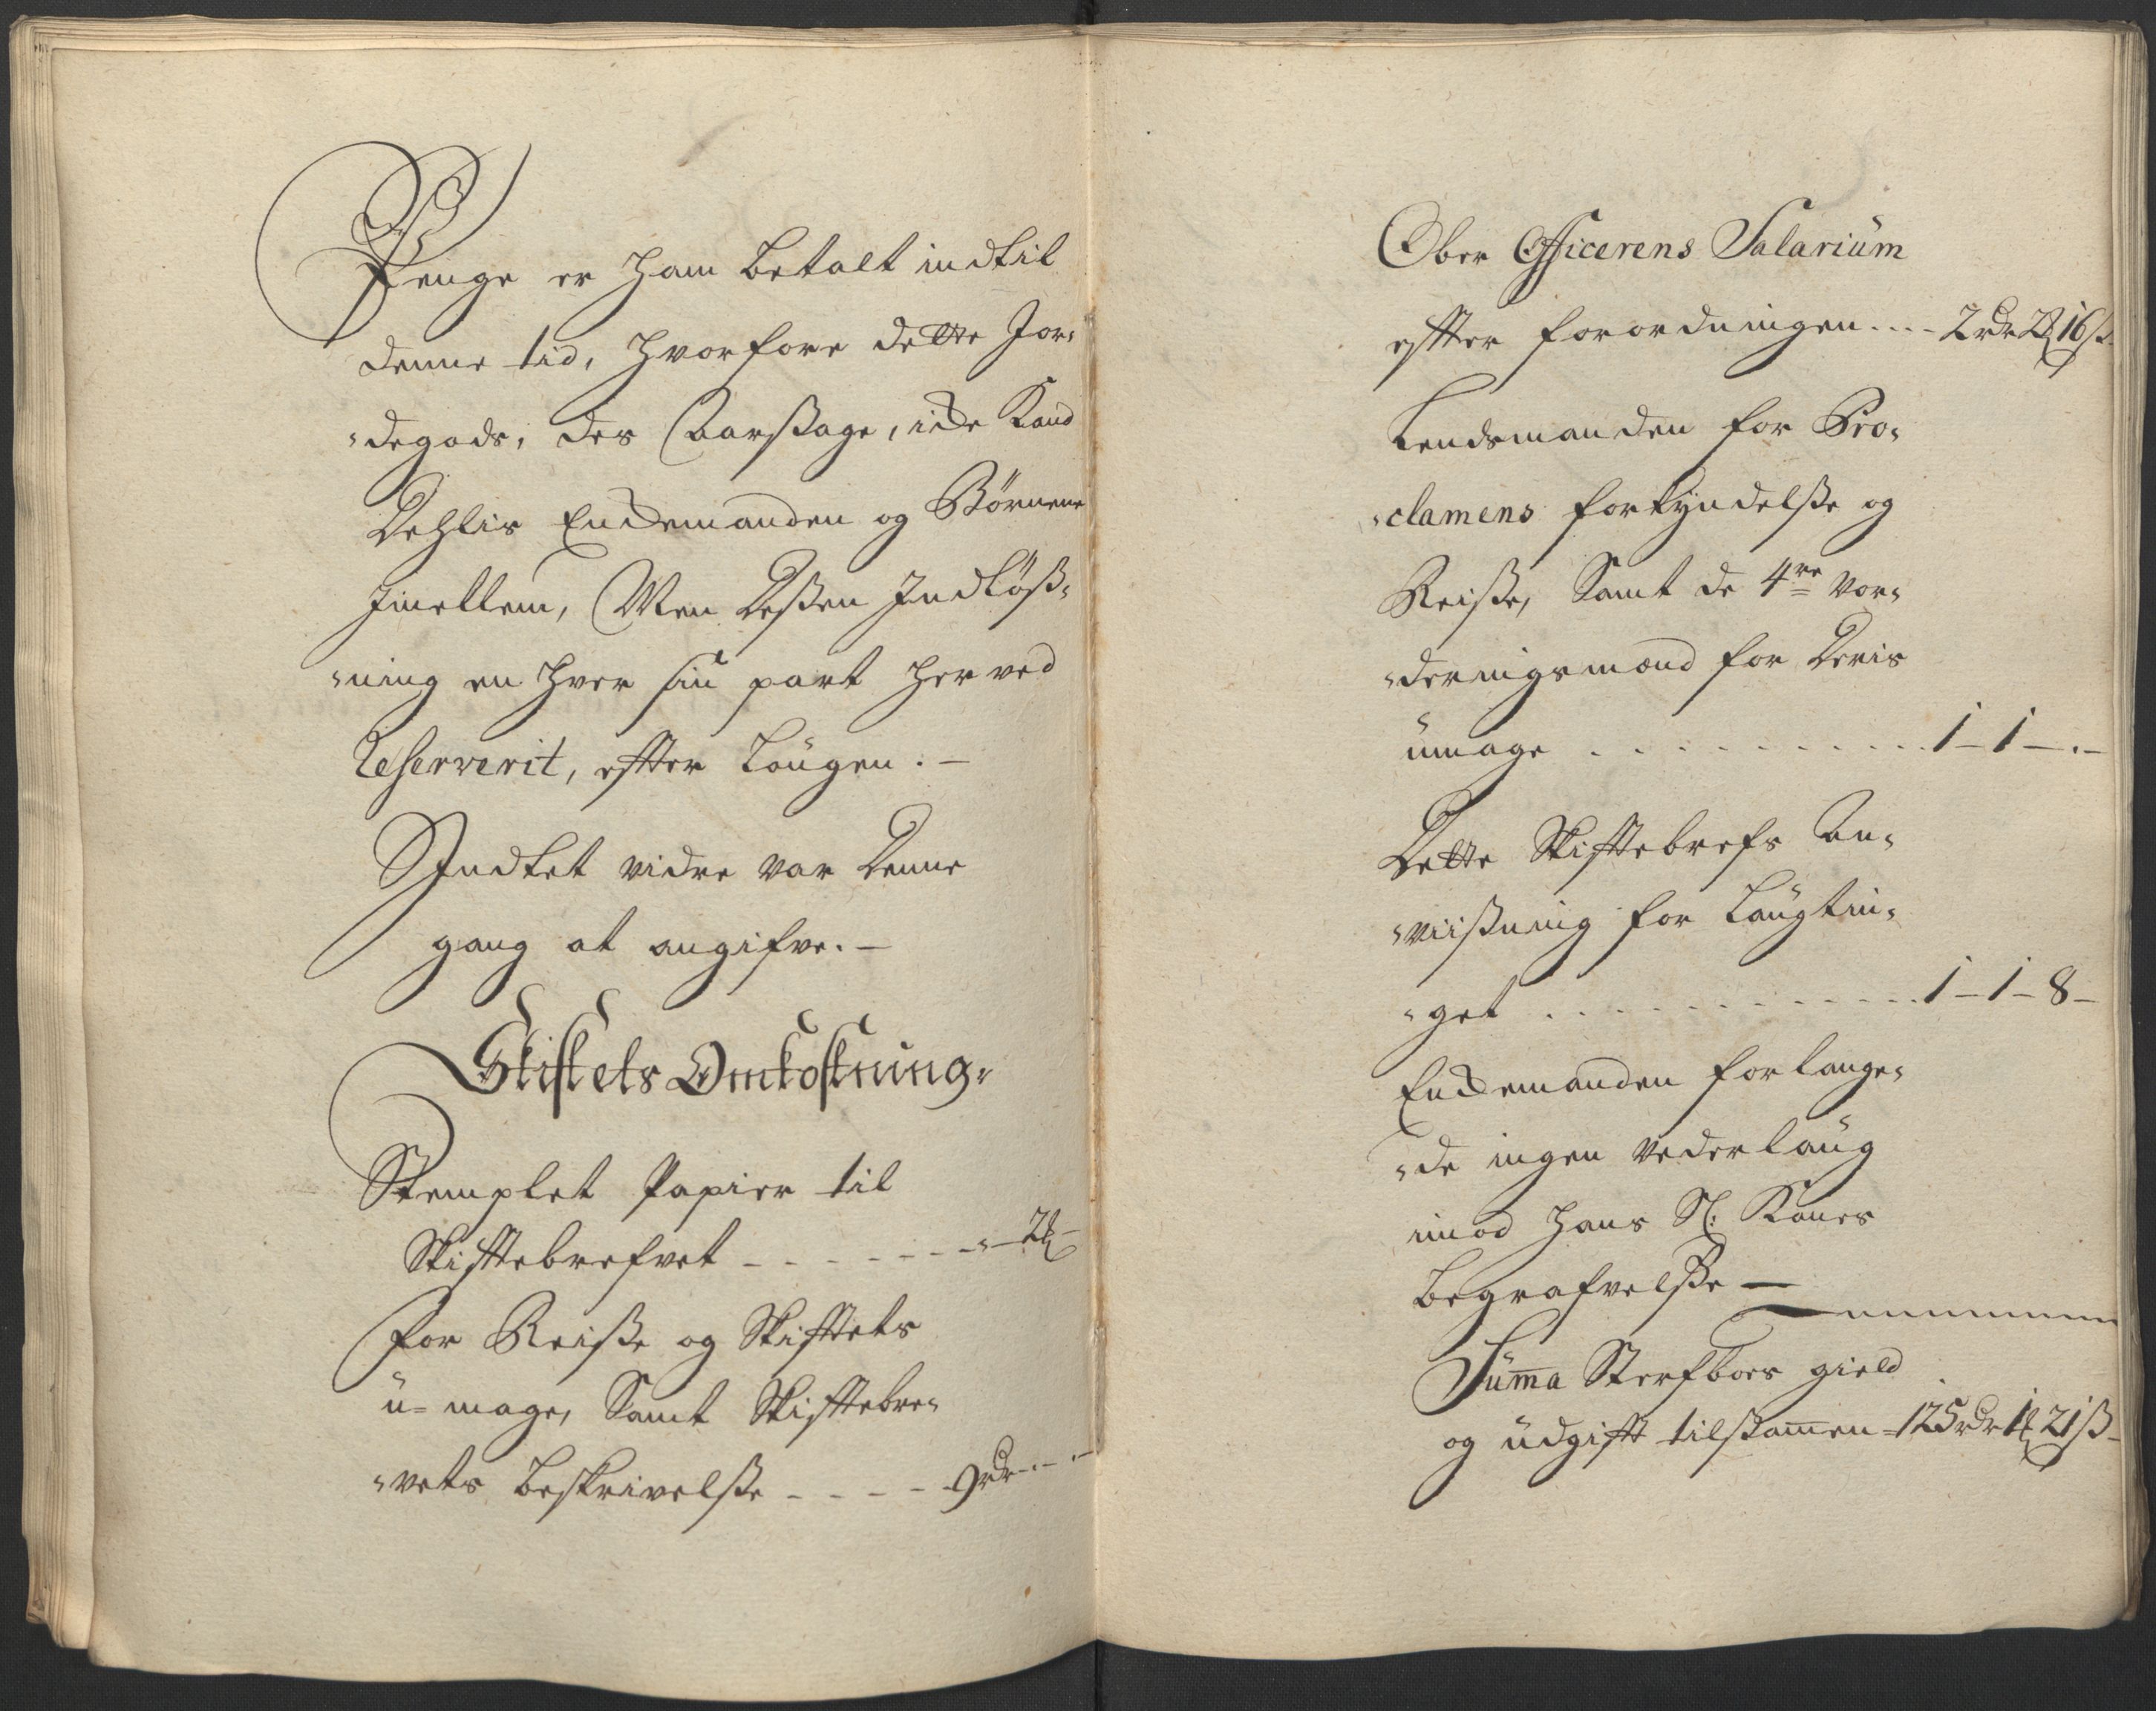 Penge er ham betalt indtil
denne tid, hvorfore dette Jor-
-degods, des Aarsage, icke Kand
Dehlis Enckemanden og Børnene
Imellem, Men dessen Indløß-
-ning en hver sin part her ved
Reserverit, efter Laugen. -
Indtet vidre var denne
gang at angifve. -
Skiftets Omkostning-
Stemplet Papier til
Skiftebrefvet - - - - - - - 2
For Reiße og Skiftets
u-mage, Samt Skiftebre-
-vets beskrivelße - - - - 9 rdr - -
Ober Officerens Salarium
efter forordningen .... 2 rdr 2 16 ß
Lendsmanden for Pro-
-clamens forkyndelße og
Reiße, Samt de 4re vor-
-deringsmænd for deris
umage . . . . . . . . . . . . 1 - 1 - . -
Dette Skiftebrefs an-
-viißning for Laugtin-
-get . . . . . . . . . . . . 1 - 1 - 8 -
Enckemanden forlange-
-de ingen vederlaug
imod hans Sl: Kones
begrafvelße -
Sum̅a Sterfboes gield
og udgift tilsam̅en - 125 rdr 1 21 ß -